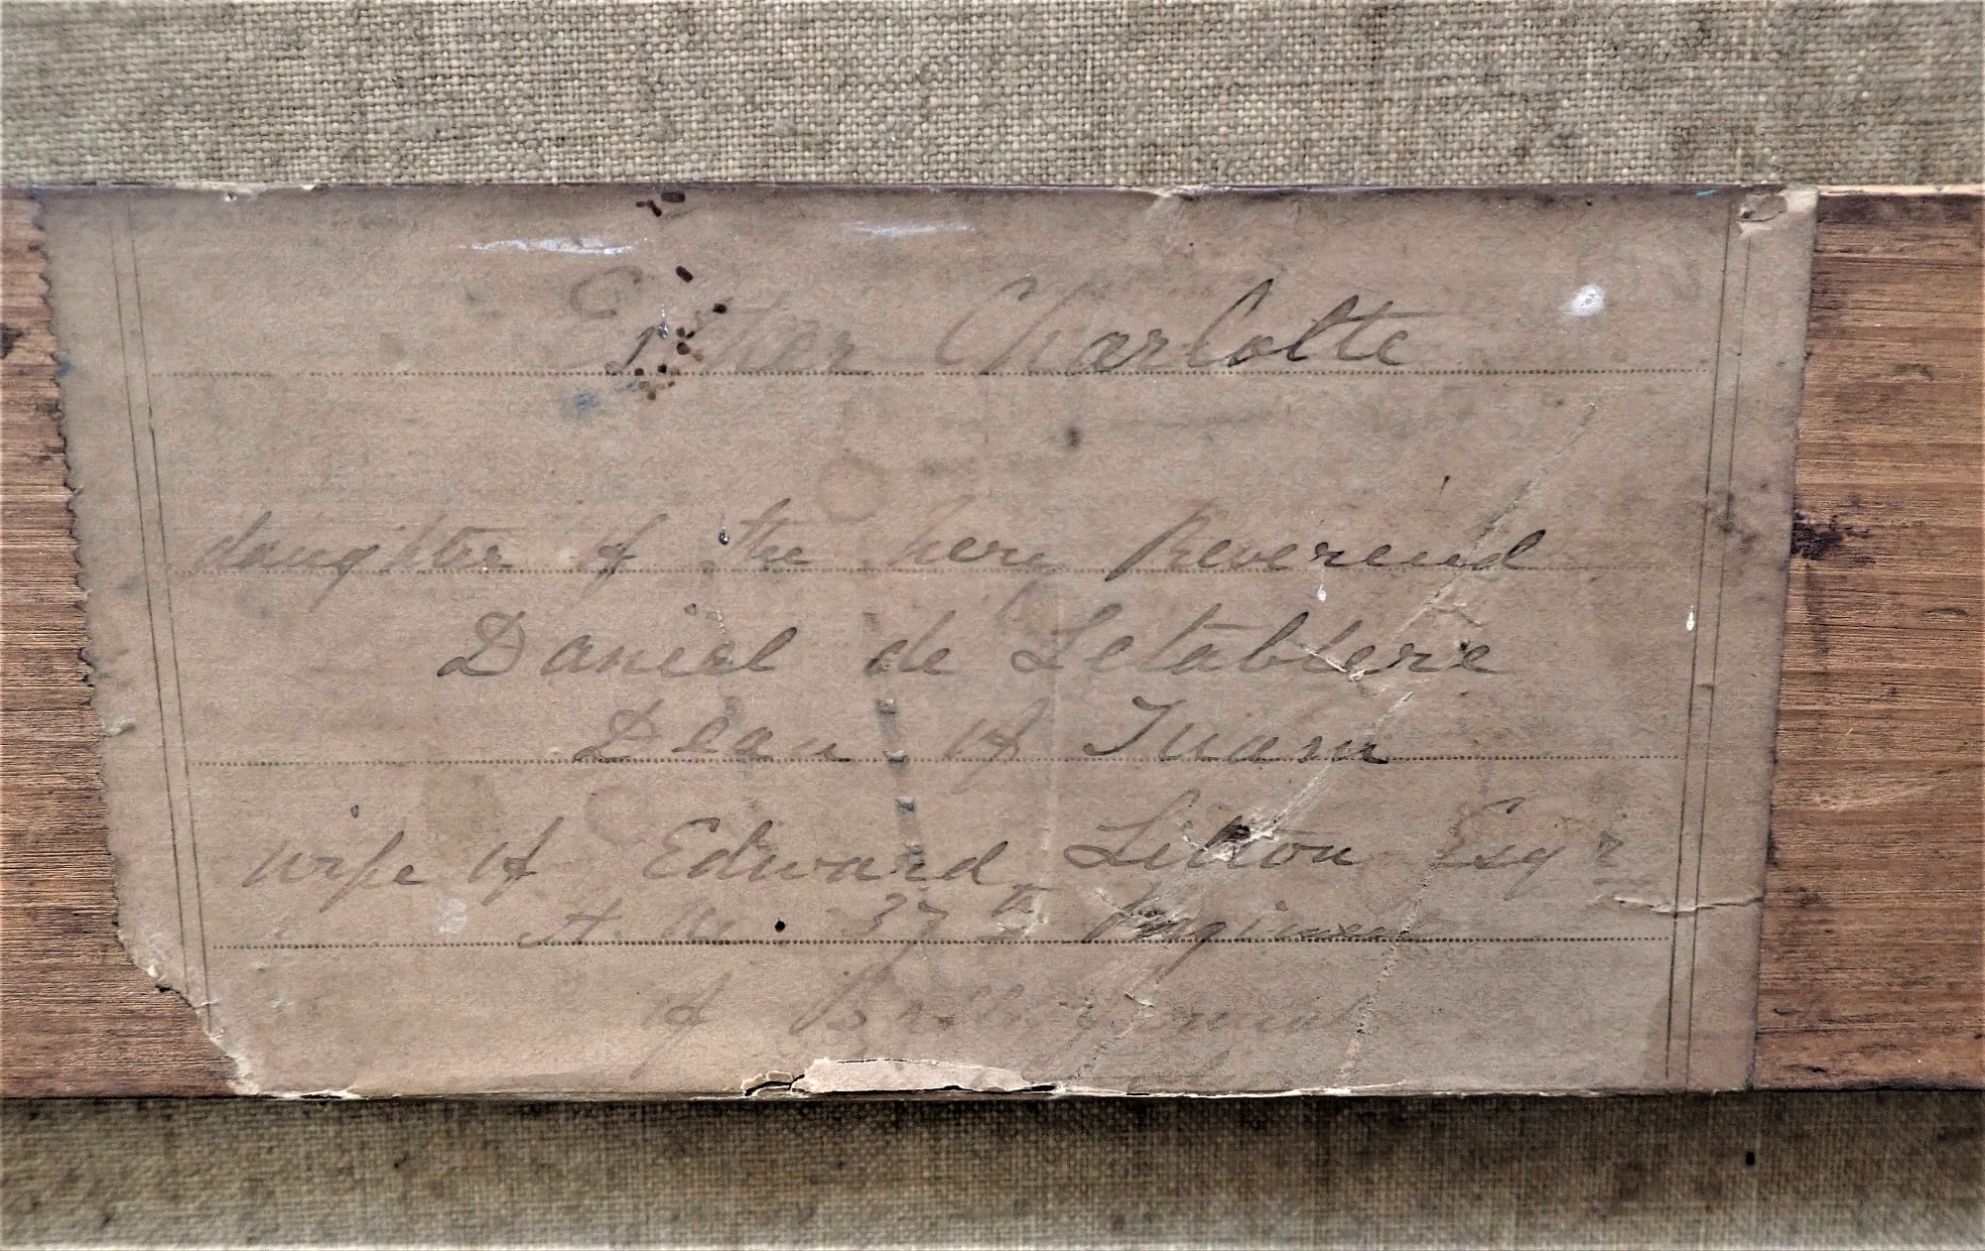 Esther Charlotte
daughter of the very Reverend
Daniel de Letablere
Dean of Tuam
wife of Edward Litton Esqr
37th Regiment
of